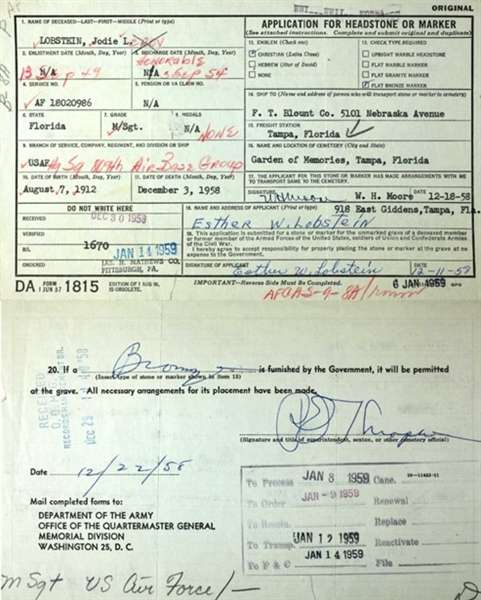 ORIGINAL
1. NAME OF DECEASED—LAST—FIRST—MIDDLE (Print or Type)
LOBSTEIN, Jodie L.
APPLICATION FOR HEADSTONE OR MARKER
(See attached instructions. Complete and submit original and duplicate)
2. ENLISTMENT DATE (Month, Day, Year)
N/A
3. DISCHARGE DATE (Month, Day, Year)
Honorable
N/A
Sep 54
11. EMBLEM (Check one)
CHRISTIAN (Latin Cross)
HEBREW (Star of David)
NONE
12. CHECK TYPE REQUIRED
UPRIGHT MARBLE HEADSTONE
FLAT MARBLE MARKER
FLAT GRANITE MARKER
FLAT BRONZE MARKER
4. SERVICE NO.
AF 18020986
5. PENSION OR VA CLAIM NO.
N/A
14. SHIP TO (Name and address of person who will transport stone or marker to cemetery)
F. T. Blount Co. 5101 Nebraska Avenue
6. STATE
Florida
7. GRADE
M/Sgt.
8. MEDALS
N/A
NONE
15. FREIGHT STATION
Tampa, Florida
9. BRANCH OF SERVICE, COMPANY, REGIMENT, AND DIVISION OR SHIP
USAF
Air Base Group
16. NAME AND LOCATION OF CEMETERY (City and State)
Garden of Memories, Tampa, Florida
10. DATE OF BIRTH (Month, Day, Year)
August 7, 1912
DATE OF DEATH (Month, Day, Year)
December 3, 1958
THE APPLICANT FOR THIS STONE OR MARKER HAS MADE ARRANGEMENTS WITH ME TO TRANSPORT SAME TO THE CEMETERY.
SIGNATURE
W. H. Moore 12-18-58
DO NOT WRITE HERE
NAME AND ADDRESS OF APPLICANT (Print or Type)
918 East Giddens, Tampa, Fla.
RECEIVED
DEC 30 1958
Esther W. Lobstein
VERIFIED
18. This application is submitted for a stone or marker for the unmarked grave of a deceased member or former member of the Armed Forces of the United States, soldiers of Union and Confederate Armies of the Civil War.
I hereby agree to accept responsibility for properly placing the stone or marker at the grave at no expense to the Government.
NO.
1670
JAN 14 1959
JAS. H. MATHEWS CO.
PITTSBURGH, PA.
SIGNATURE OF APPLICANT
Esther W. Lobstein
12-11-58
DA FORM 1 JUN 57 1815
EDITION OF 1 AUG 56 IS OBSOLETE.
IMPORTANT—Reverse Side Must be Completed.
6 JAN 1959
GPO
20. If a Bronze is furnished by the Government, it will be permitted
(Insert type of stone or marker shown in Item 12)
at the grave. All necessary arrangements for its placement have been made.
RECEIVED
(Signature and title of superintendent, sexton, or other cemetery official)
Date 12/22/58
Mail completed forms to:
DEPARTMENT OF THE ARMY
OFFICE OF THE QUARTERMASTER GENERAL
MEMORIAL DIVISION
WASHINGTON 25, D. C.
To Process JAN 8 1959 Canc.
To Order JAN -9 1959 Renewal
Replace
To Transp. JAN 12 1959 Reactivate
JAN 14 1959
To F & C File
M Sgt US Air Force/—